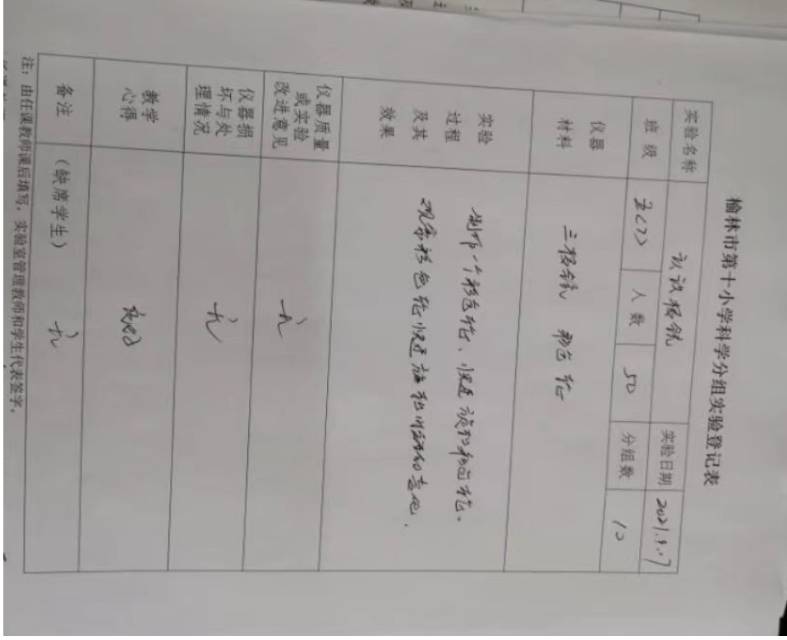 榆林市第十小学科学分组实验登记表
实验名称 认识棱镜 实验日期 2021.9.17
班级 五(7) 人数 50 分组数 12
仪器
材料
三棱镜 彩色轮
实验
过程
及其
效果
制作一个彩色轮、快速旋转彩色轮。
观察彩色轮快速旋转时
仪器质量
或实验
改进意见
无
仪器损
坏与处
理情况
无
教学
心得
备注 (缺席学生) 无
注：由任课教师课后填写，实验室管理教师和学生代表签字。